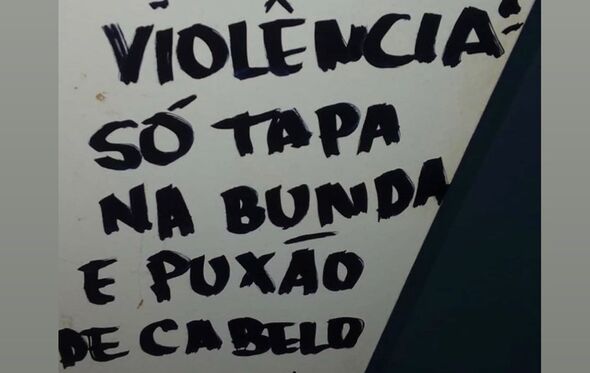 VIOLÊNCIA:
SÓ TAPA
NA BUNDA
E PUXÃO
DE CABELO